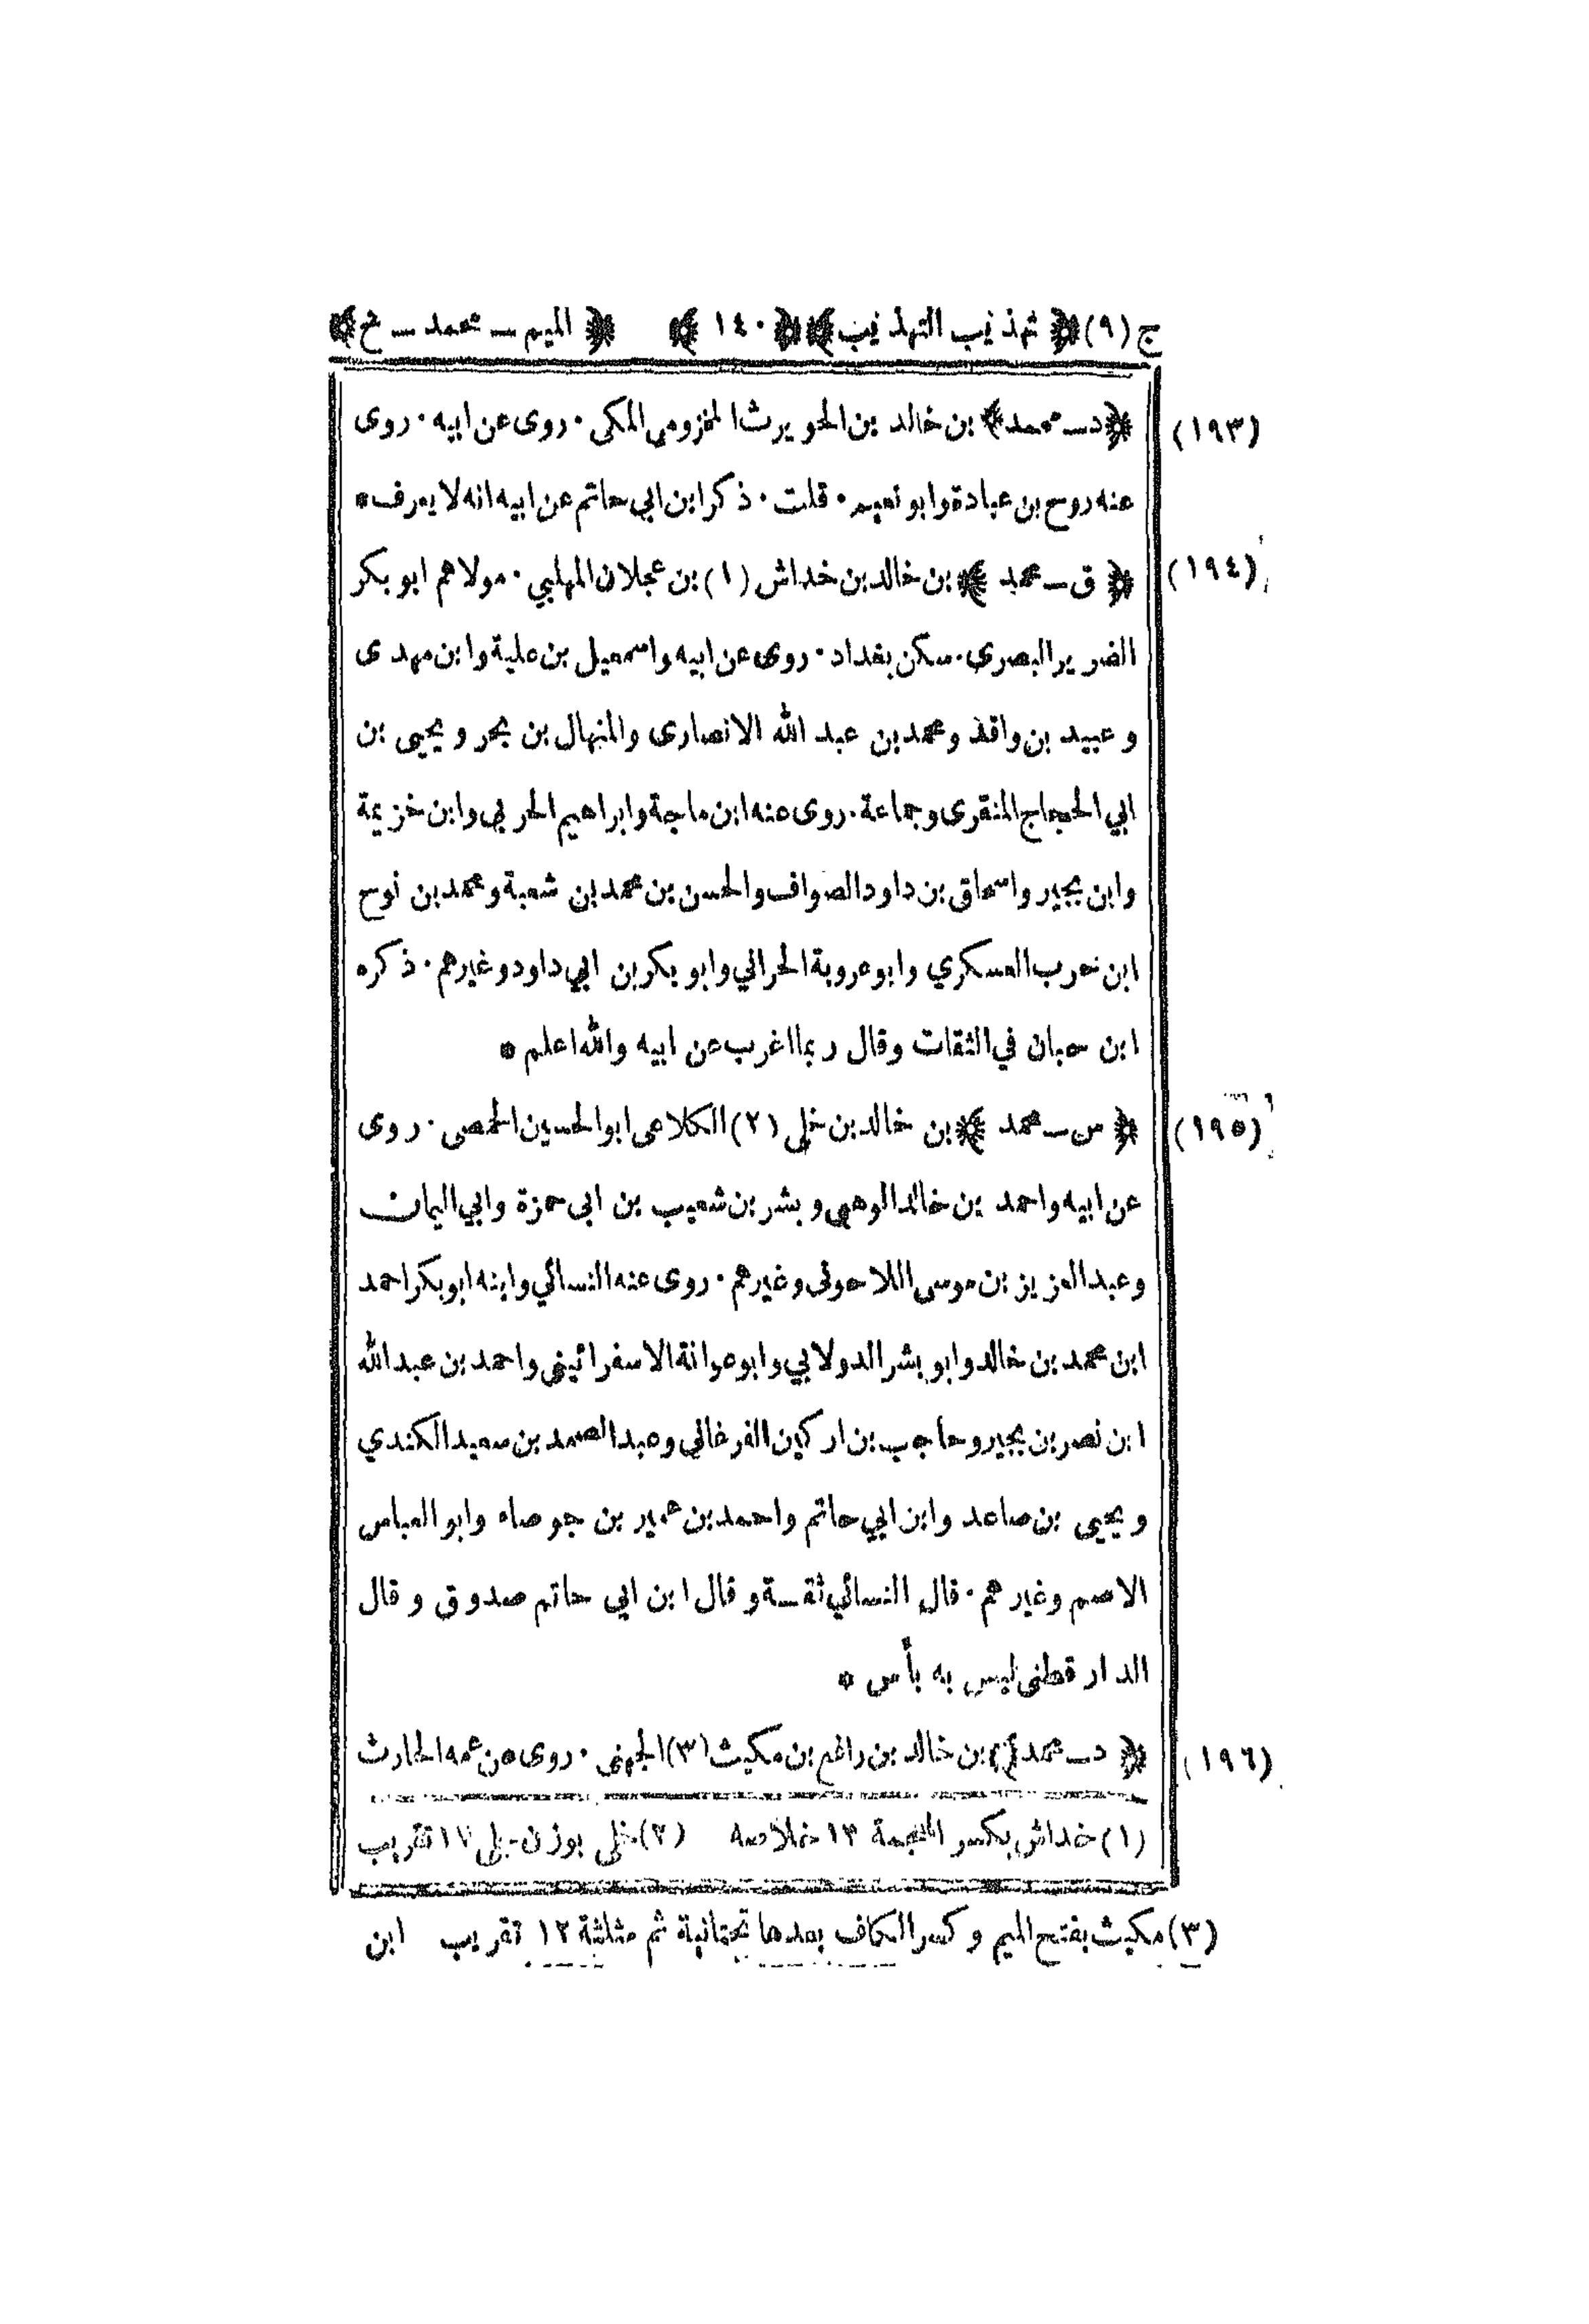 ج (٩) ﴿ تهذيب التهذيب ﴾ ﴿ ١٤٠ ﴾ ﴿ الميم ــ محمد ــ خ ﴾
(١٩٣) ﴿ د ــ محمد ﴾ بن خالد بن الحويرث المخزومي المكى · روى عن ابيه · روى
عنه روح بن عبادة وابو نعيم · قلت · ذكر ابن ابي حاتم عن ابيه انه لا يعرف *
(١٩٤) ﴿ ق ــ محمد ﴾ بن خالد بن خداش (١) بن عجلان المهلبي · مولاهم ابو بكر
الضرير البصرى · سكن بغداد · روى عن ابيه واسمعيل بن علية وابن مهدى
وعبيد بن واقد ومحمد بن عبد الله الانصارى والمنهال بن بحر ويحيى بن
ابي الحجاج المنقرى وجماعة · روى عنه ابن ماجة وابراهيم الحربي وابن خزيمة
وابن بجير واسحاق بن داود الصواف والحسن بن محمد بن شعبة ومحمد بن نوح
ابن حرب العسكري وابو عروبة الحراني وابو بكر بن ابي داود وغيرهم · ذكره
ابن حبان في الثقات وقال ربما اغرب عن ابيه والله اعلم *
(١٩٥) ﴿ س ــ محمد ﴾ بن خالد بن خلي (٢) الكلاعى ابو الحسين الحمصى · روى
عن ابيه واحمد بن خالد الوهبى وبشر بن شعيب بن ابى حمزة وابي اليمان
وعبد العزيز بن موسى اللاحونى وغيرهم · روى عنه النسائي وابنه ابو بكر احمد
ابن محمد بن خالد وابو بشر الدولابي وابو عوانة الاسفرائينى واحمد بن عبد الله
ابن نصر بن بجير وحاجب بن اركين الفرغاني وعبد الصمد بن سعيد الكندي
ويحيى بن صاعد وابن ابي حاتم واحمد بن عمير بن جوصاء وابو العباس
الاصم وغيرهم · قال النسائي ثقــة وقال ابن ابي حاتم صدوق وقال
الدار قطنى ليس به بأس *
(١٩٦) ﴿ د ــ محمد ﴾ بن خالد بن رافع بن مكيث (٣) الجهنى · روى عن عمه الحارث
(١) خداش بكسر المعجمة ١٢ خلاصه (٢) خلى بوزن بلى ١٢ تقريب
(٣) مكيث بفتح الميم وكسر الكاف بعدها تحتانية ثم مثلثة ١٢ تقريب ابن